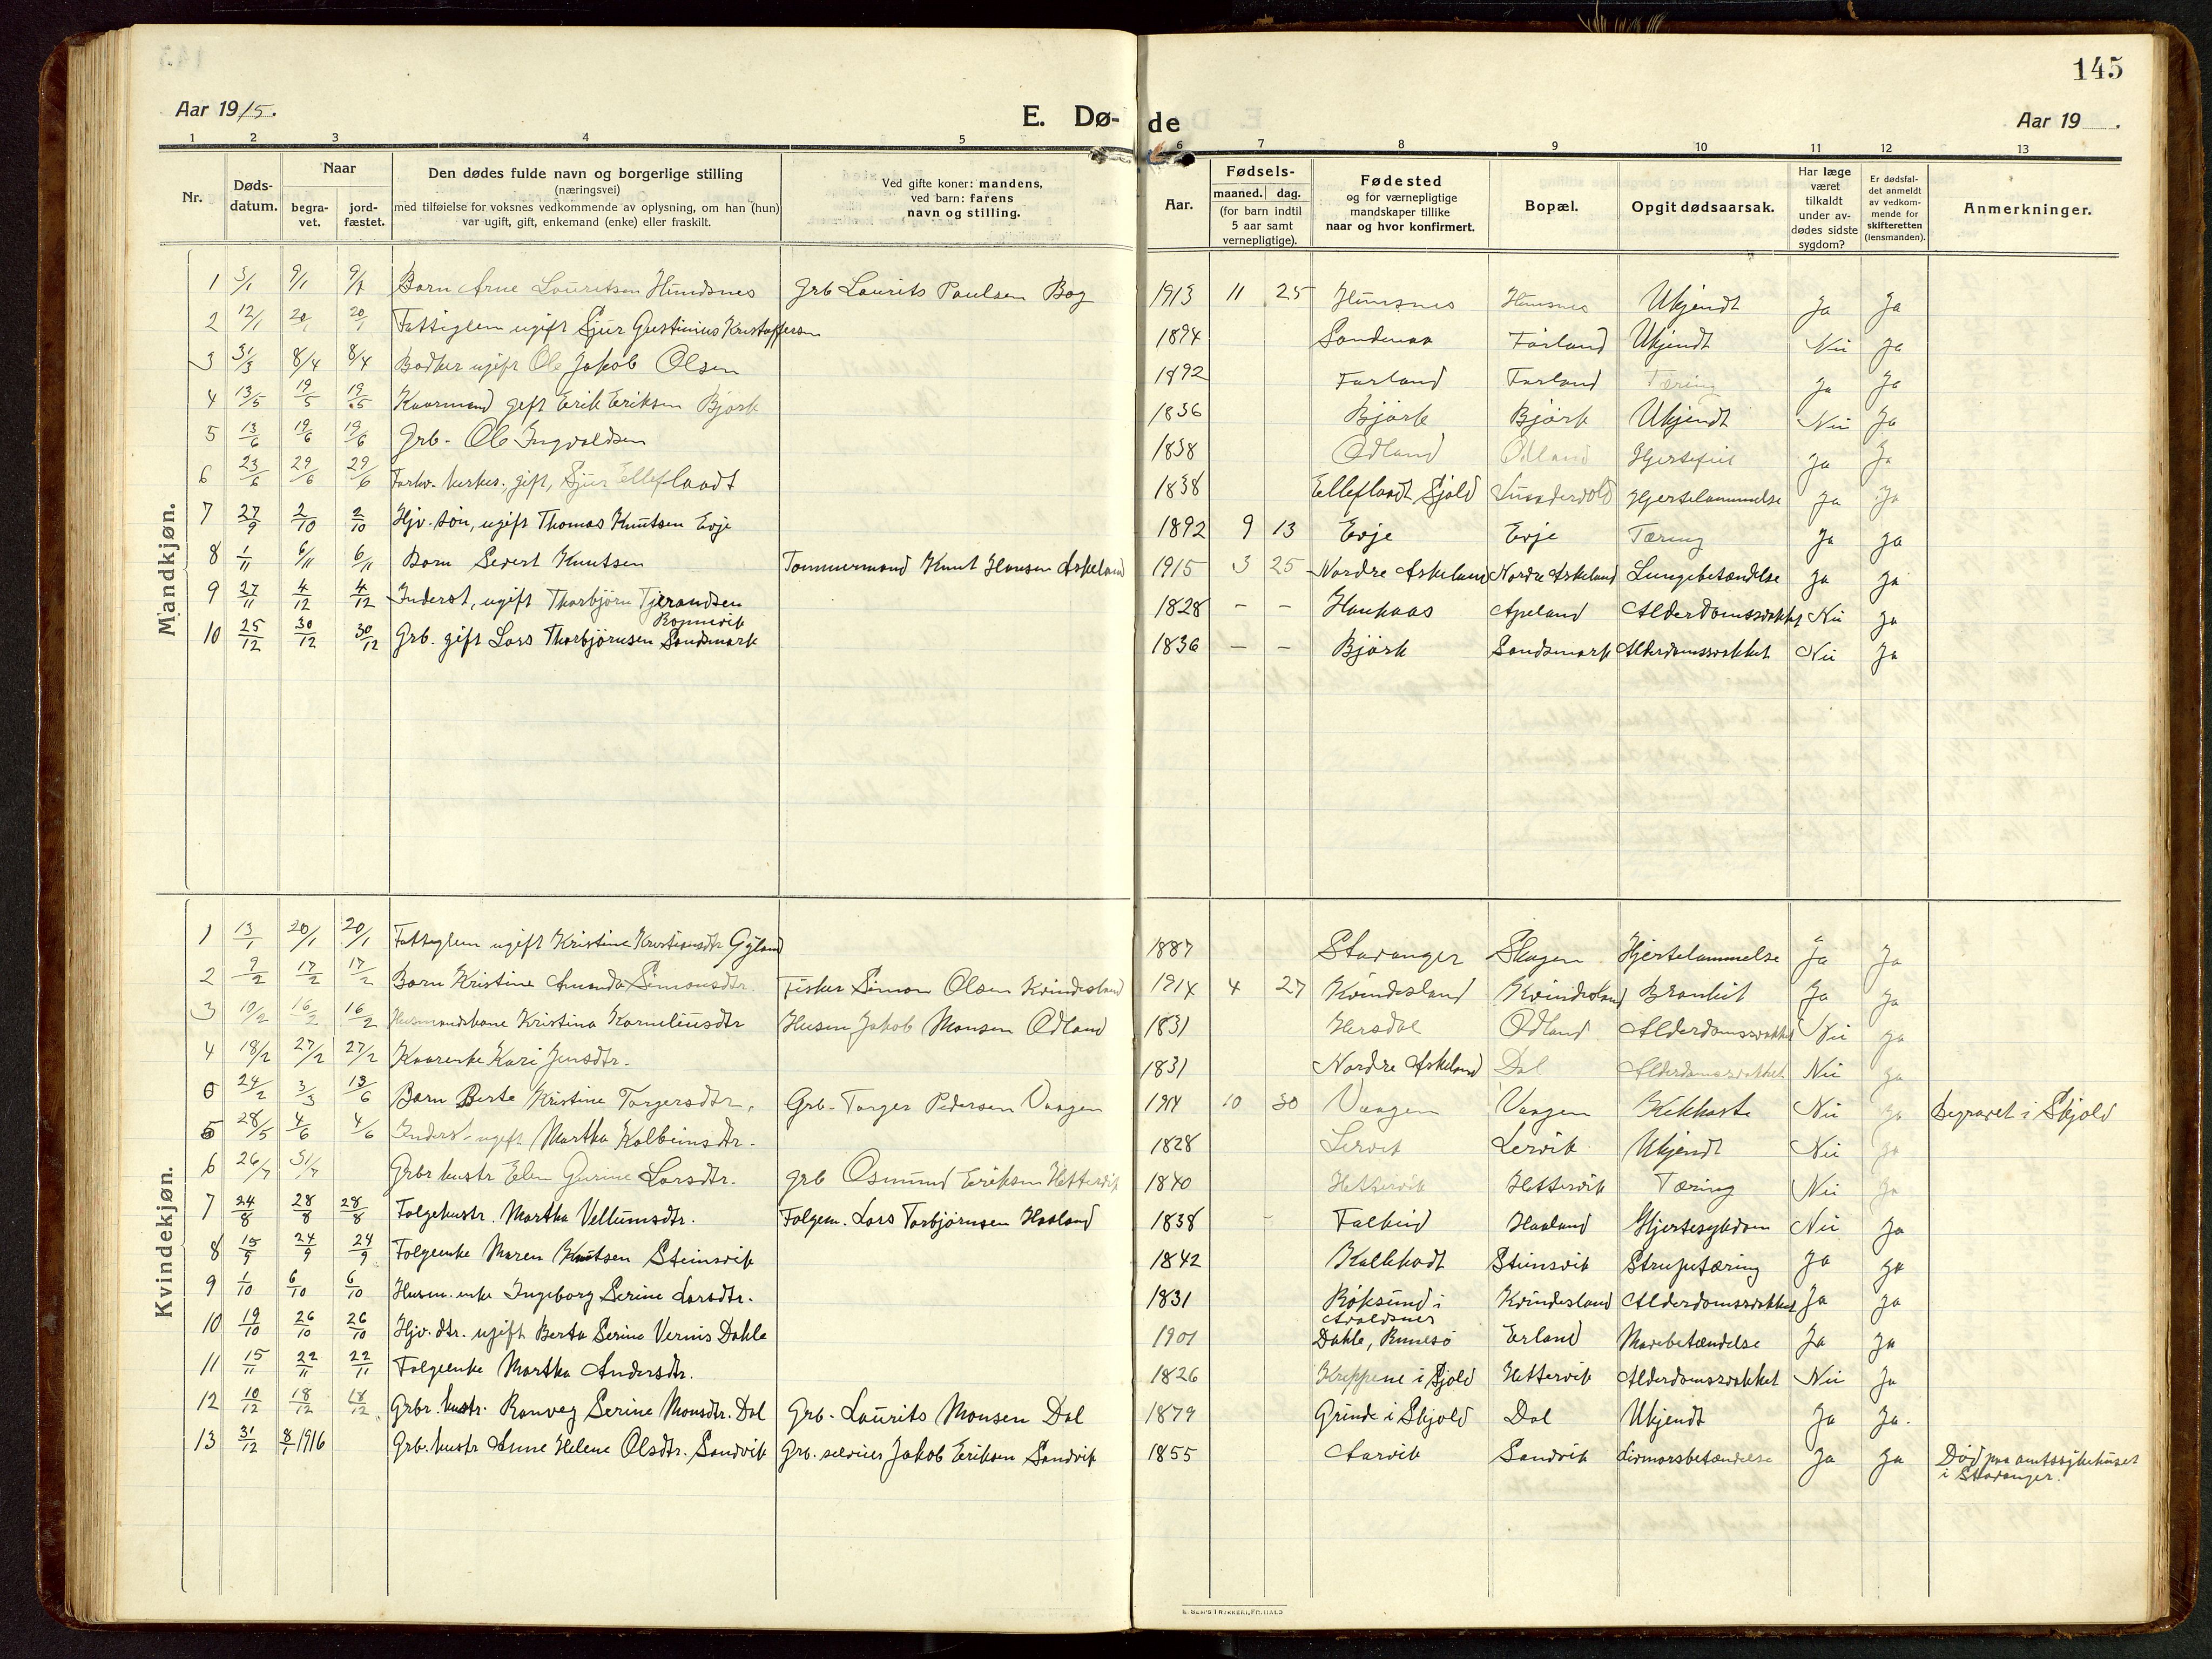 145
Aar 1915.
E. Dø- de
Aar 19 .
1 2 3 4 5 6 7 8 9 10 11 12 13
Nr.
Døds-datum.
Naar
begra-vet.
jord-fæstet.
Den dødes fulde navn og borgerlige stilling
(næringsvei)
med tilføielse for voksnes vedkommende av oplysning, om han (hun)
var ugift, gift, enkemand (enke) eller fraskilt.
Ved gifte koner: mandens,
ved barn: farens
navn og stilling.
Aar.
Fødsels-
maaned. dag.
(for barn indtil
5 aar samt
vernepligtige).
Fødested
og for værnepligtige
mandskaper tillike
naar og hvor konfirmert.
Bopæl.
Opgit dødsaarsak.
Har læge
været
tilkaldt
under av-
dødes sidste
sygdom?
Er dødsfal-
det anmeldt
av vedkom-
mende for
skifteretten
(lensmanden).
Anmerkninger.
Mandkjøn.
1 3/1 9/1 9/1 Barn Arne Lauritsen Hundsnes Grb Laurits Paulsen Bog 1913 11 25 Hunsnes Hunsnes Ukjendt Ja Ja
2 12/1 20/1 20/1 Fattiglem ugift Sjur Gustinius Kristoffersen 1894 Førland Ukjendt Nei Ja
3 31/3 8/4 8/4 Bødker ugift Ole Jakob Olsen 1892 Førland Førland Tæring Ja Ja
4 13/5 19/5 19/5 Kaarmand gift Erik Eriksen Bjørk 1836 Bjørk Bjørk Ukjendt Nei Ja
5 13/6 19/6 19/6 Grb. Ole Ingvaldsen 1838 Ødland Ødland Hjertefeil Ja Ja
6 23/6 29/6 29/6 gift, Sjur Elleflaadt 1838 Ellefladt Sjold Hjertelammelse Ja Ja
7 27/9 2/10 2/10 Hjv. søn, ugift Thomas Knutsen Evje 1892 9 13 Evje Evje Tæring Ja Ja
8 1/11 6/11 6/11 Barn Severt Knutsen Tømmermand Knut Hansen Askeland 1915 3 25 Nordre Askeland Nordre Askeland Lungebetændelse Ja Ja
9 27/11 4/12 4/12 Inderst, ugift Thorbjørn Tjerandsen Ropnevik 1828 - - Haukaas Apeland Alderdomssvakket Nei Ja
10 25/12 30/12 30/12 Grb. gift Lars Thorbjørnsen Sandsmark 1836 - - Bjørk Sandsmark Alderdomssvakket Nei Ja
Kvindekjøn.
1 13/1 20/1 20/1 Fattiglem ugift Kristine Kristiansdtr Gyland 1887 Stavanger Skagen Hjertelammelse Ja Ja
2 9/2 17/2 17/2 Barn Kristine Amanda Simonsdtr. Fisker Simon Olsen Kvindesland 1914 4 27 Kvindesland Kvindesland Bronkit Ja Ja
3 10/2 16/2 16/2 Husmandskone Kristina Korneliusdtr Husm Jakob Monsen Ødland 1831 Hersdal Ødland Alderdomssvakket Nei Ja
4 18/2 27/2 27/2 Kaarenke Kari Jensdtr. 1831 Nordre Askeland Dal Alderdomssvakket Nei Ja
5 24/2 3/3 13/6 Barn Berte Kristine Torgersdtr. Grb. Torger Pedersen Vaagen 1914 10 30 Vaagen Vaagen Kikhoste Nei Ja Begravet i Skjold
5 28/5 4/6 4/6 Inderst ugift Martha Kolbeinsdtr. 1828 Lervik Lervik Ukjendt Nei Ja
6 26/7 31/7 Grbr hustr Elen Gurine Larsdtr. grb Osmund Eriksen Hettervik 1840 Hettervik Hettervik Tæring Nei Ja
7 24/8 28/8 28/8 Folgehustr. Martha Vellumsdtr. Folgem. Lars Torbjørnsen Haaland 1838 Falkeid Haaland Hjertesykdom Nei Ja
8 15/9 24/9 24/9 Folgeenke Maren Knutsen Steinsvik 1842 Steinsvik Strupetæring Ja Ja
9 1/10 6/10 6/10 Husm. enke Ingeborg Serine Larsdtr. 1831 Røksund i Avaldsnes Kvindesland Alderdomssvakket Ja Ja
10 19/10 26/10 26/10 Hjv. dtr. ugift Berta Serine Vernis Dahle 1901 Dahle, Erland Mavebetændelse Ja Ja
11 15/11 22/11 22/11 Folgeenke Martha Andersdtr. 1826 Kreppene i Sjold Hettervik Alderdomssvakket Nei Ja
12 10/12 18/12 18/12 Grbr. hustr. Ranveg Serine Monsdtr. Dal Grb. Laurits Monsen Dal 1879 Grinde i Skjold Dal Ukjendt Ja Ja.
13 31/12 8/1 1916 Grb. hustr Anne Helene Olsdtr. Sandvik Grb. selveier Jakob Eriksen Sandvik 1855 Aarvik Sandvik Livmorsbetændelse Ja Ja Død paa amtssykehuset
i Stavanger.